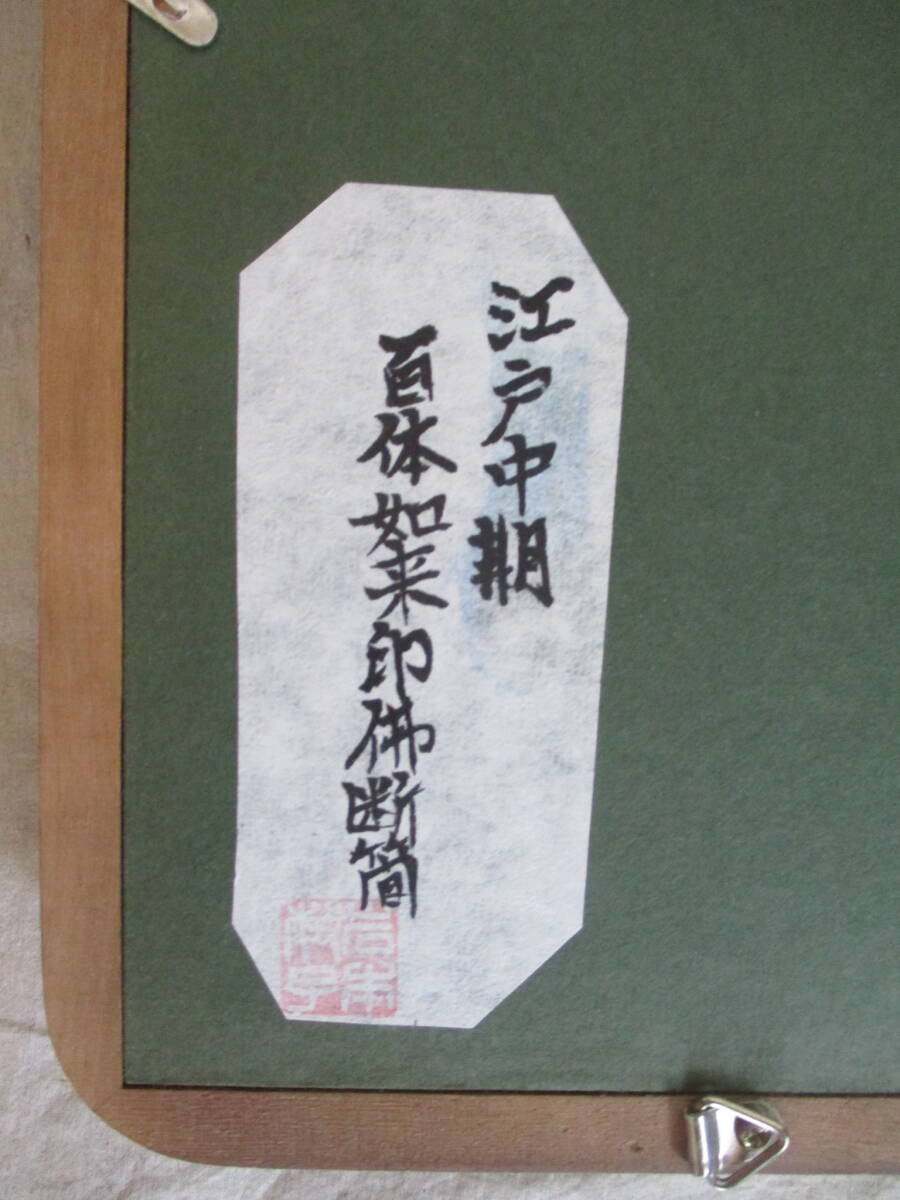 江戸中期
百体如来印佛断簡